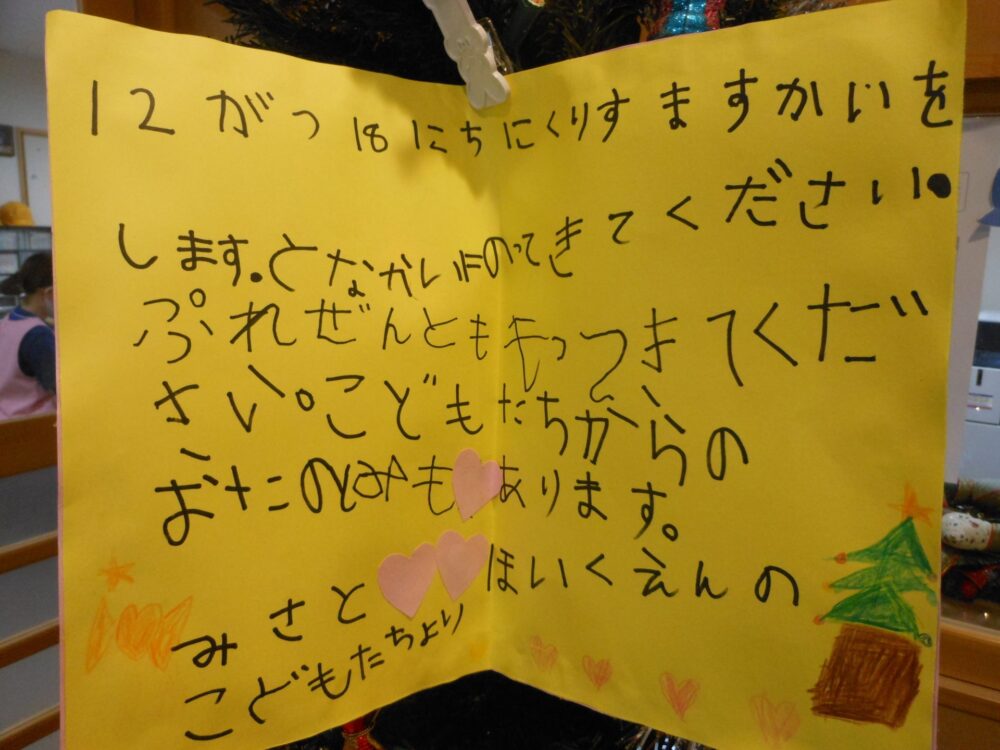 12がつ18にちにくりすますかいを
します。となかいにのってきてください。
ぷれぜんとももってきてくだ
さい。こどもたちからの
おたのしみもあります。
みさとほいくえんの
こどもたちより